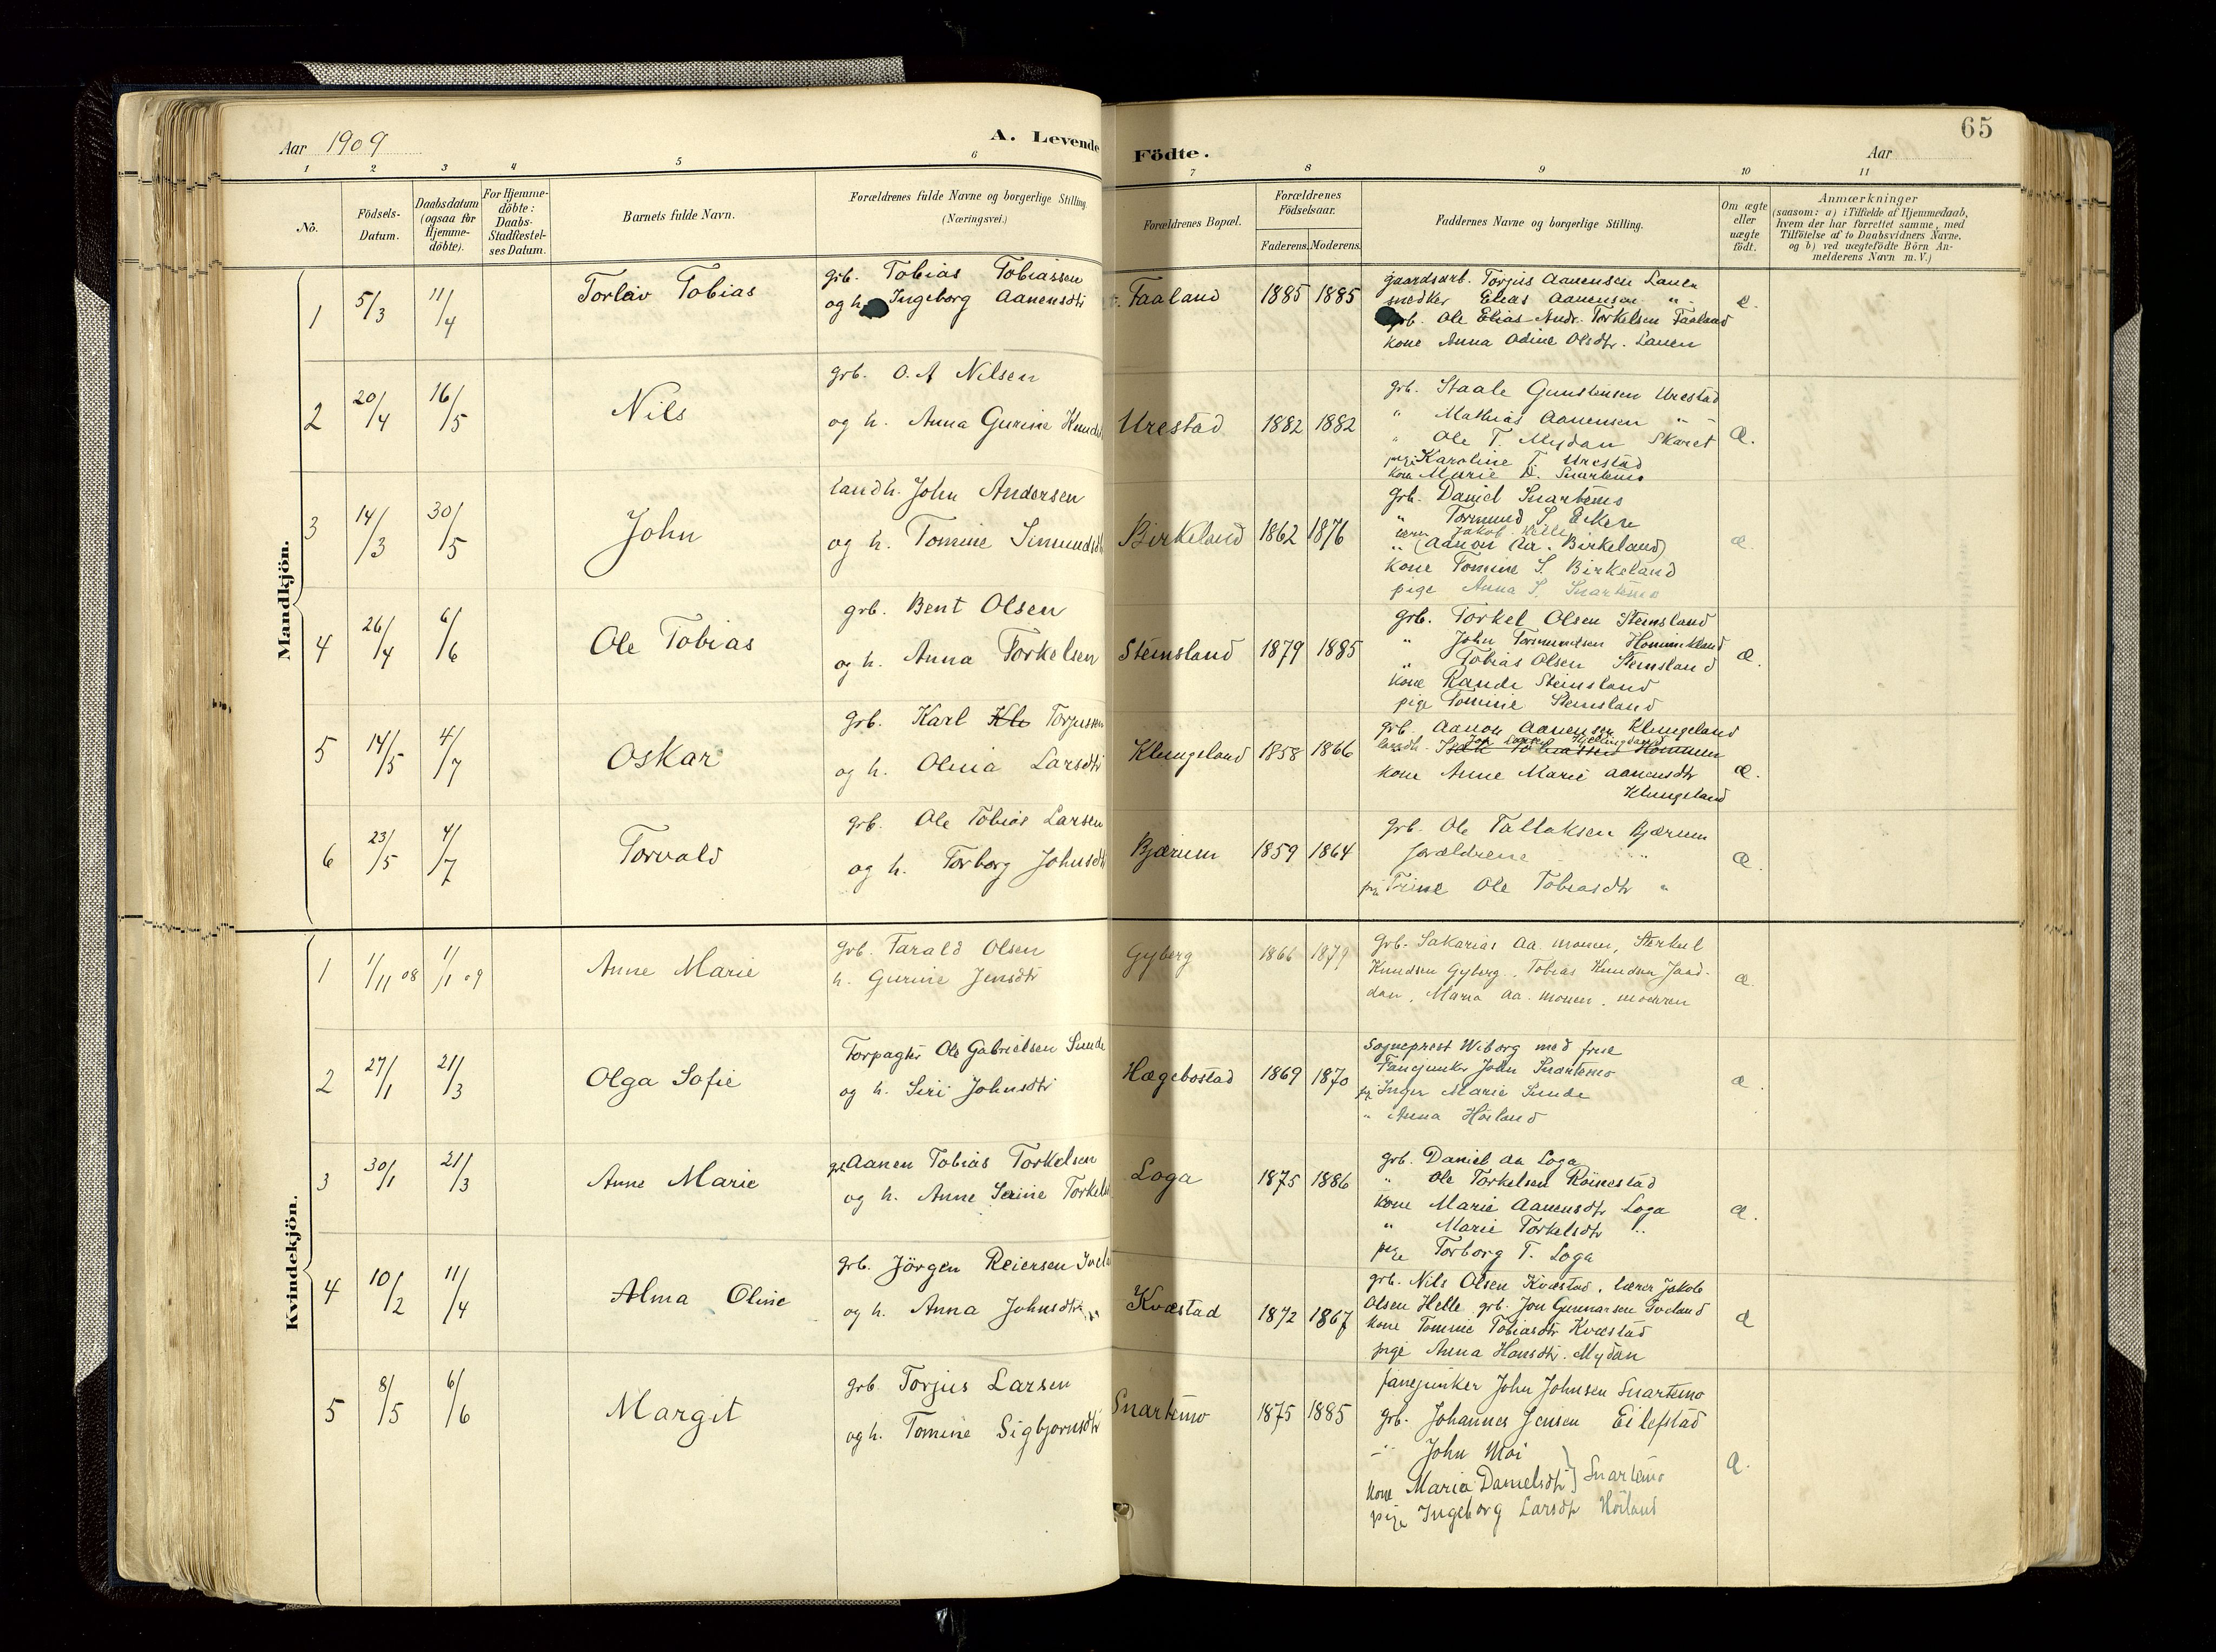 65
Aar 1909
A. Levende Födte.
Aar
1 2 3 4 5 6 7 8 9 10 11
No.
Födsels-Datum.
Daabsdatum (ogsaa for Hjemme-döbte).
For Hjemme-döbte: Daabs-Stadfestel-ses Datum.
Barnets fulde Navn.
Forældrenes fulde Navne og borgerlige Stilling. (Næringsvei.)
Forældrenes Bopæl.
Forældrenes Födselsaar.
Faderens. Moderens.
Faddernes Navne og borgerlige Stilling.
Om ægte eller uægte födt.
Anmærkninger
(saasom: a) i Tilfælde af Hjemmedaab,
hvem der har forrettet samme, med
Tilföielse af to Daabsvidners Navne,
og b) ved uægtefödte Börn An-
melderens Navn m. V.)
Mandkjön.
1 5/3 11/4 Torlav Tobias
grb. Tobias Tobiassen
og h. Ingeborg Aanensdtr
Faaland 1885 1885
gaardsarb. Torjus Aanensen Lauen
snedker Elias Aanensen " -
grb. Ole Elias Andr. Torkelsen Faaland
kone Anna Odine Olsdtr. Lauen
æ.
2 20/4 16/5 Nils
grb. O. A Nilsen
og h. Anna Gurine Knuds
Urestad 1882 1882
grb. Staale Gunstensen Urestad
" Mathias Aanensen " -
" Ole T. Mydan Skaret
pige Karoline T. Urestad
kone Marie D. Snartemo
æ.
3 14/3 30/5 John
landh. John Andersen
og h. Tomine Simundsdt
Birkeland 1862 1876
grb. Daniel Snartemo
" Tormund S. Eikere
lærer Jakob Helle
" (Aanon Aa. Birkeland)
kone Tomine S. Birkeland
pige Anna S. Snartemo
æ.
4 26/4 6/6 Ole Tobias
grb. Bent Olsen
og h. Anna Torkelsen
Steinsland 1879 1885
grb. Torkel Olsen Steinsland
" John Tormundsen Hommekland
" Tobias Olsen Steinsland
kone Randi Steinsland
pige Tomine Steinsland
æ.
5 14/5 4/7 Oskar
grb. Karl Kle Torjussen
og h. Olivia Larsdtr
Klungeland 1858 1866
grb. Aanon Aanensen Klungeland
landh. Isak Tobiassen Hommen
kone Anne Marie Aanensdtr
Klungeland
æ.
6 23/5 4/7 Torvald
grb. Ole Tobias Larsen
og h. Torborg Johnsdtr
Bjærum 1859 1864
grb. Ole Tallaksen Bjærum
forældrene "
pig Trine Ole Tobiasdtr "
æ.
Kvindekjön.
1 1/11 08 1/1 09 Anne Marie
grb. Tarald Olsen
h. Gurine Jensdtr
Gyberg 1866 1879
grb. Sakarias Aa. Monen, Sterkul
Knudsen Gyberg, Tobias Knudsen Jaad-
dan, Maria Aa. Monen, moderen
æ.
2 27/1 21/3 Olga Sofie
Forpagter Ole Gabrielsen Sunde
og h. Siri Johnsdtr
Hægebostad 1869 1870
Sogneprest Wiborg med frue
Fanejunker John Snartemo
pig Inger Marie Sunde
" Anna Höiland
æ.
3 30/1 21/3 Anne Marie
grb Aanen Tobias Torkelsen
og h. Anne Serine Torkels
Loga 1875 1886
grb. Daniel Aa Loga
" Ole Torkelsen Röinestad
kone Marie Aanensdtr Loga
" Marie Torkelsdtr "
pige Torborg T. Loga
æ.
4 10/2 11/4 Alma Oline
grb. Jörgen Reiersen Tvela
og h. Anna Johnsdtr "
Kvæstad 1872 1867
grb. Nils Olsen Kvæstad, lærer Jakob
Olsen Helle grb. Jon Gunnarsen Tveland
kone Tomine Tobiasdtr Kvæstad
pige Anna Hansdtr. Mydan
æ
5 8/5 6/6 Margit
grb. Torjus Larsen
og h. Tomine Sigbjornsdtr
Snartemo 1875 1885
fanejunker John Johnsen Snartemo
grb. Johannes Jensen Eilefstad
" John Moi
kone Maria Danielsdtr } Snartemo
pige Ingeborg Larsdtr Höiland
æ.